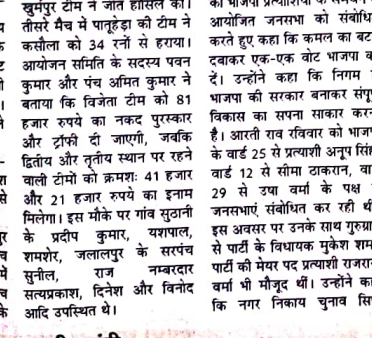 खुर्मपुर टीम ने जीत हासिल की।
तीसरे मैच में पातूहेड़ा की टीम ने
कसौला को 34 रनों से हराया।
आयोजन समिति के सदस्य पवन
कुमार और पंच अमित कुमार ने
बताया कि विजेता टीम को 81
हजार रुपये का नकद पुरस्कार
और ट्रॉफी दी जाएगी, जबकि
द्वितीय और तृतीय स्थान पर रहने
वाली टीमों को क्रमशः 41 हजार
और 21 हजार रुपये का इनाम
मिलेगा। इस मौके पर गांव सुठानी
के प्रदीप कुमार, यशपाल,
शमशेर, जलालपुर के सरपंच
सुनील, राज नम्बरदार
सत्यप्रकाश, दिनेश और विनोद
आदि उपस्थित थे।
आयोजित जनसभा को संबोधि
करते हुए कहा कि कमल का बट
दबाकर एक-एक वोट भाजपा क
दें। उन्होंने कहा कि निगम
भाजपा की सरकार बनाकर संपू
विकास का सपना साकार कर
है। आरती राव रविवार को भाज
के वार्ड 25 से प्रत्याशी अनूप सिंह
वार्ड 12 से सीमा ठाकरान, वा
29 से उषा वर्मा के पक्ष
जनसभाएं संबोधित कर रही थीं
इस अवसर पर उनके साथ गुरुग्रा
से पार्टी के विधायक मुकेश शम
पार्टी की मेयर पद प्रत्याशी राजरा
वर्मा भी मौजूद थीं। उन्होंने क
कि नगर निकाय चुनाव सि